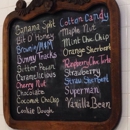 Banana Split
Bit O' Honey
Brownie/M&M
Bunny Tracks
Butter Pecan
Caramelicious
Cherry Nut
Chocolate
Coconut Chocchip
Cookie Dough
Cotton Candy
Maple Nut
Mint Choc.Chip
Orange Sherbert
Raspberry Choc Torte
Strawberry
Straw. Sherbert
Superman
Vanilla Bean